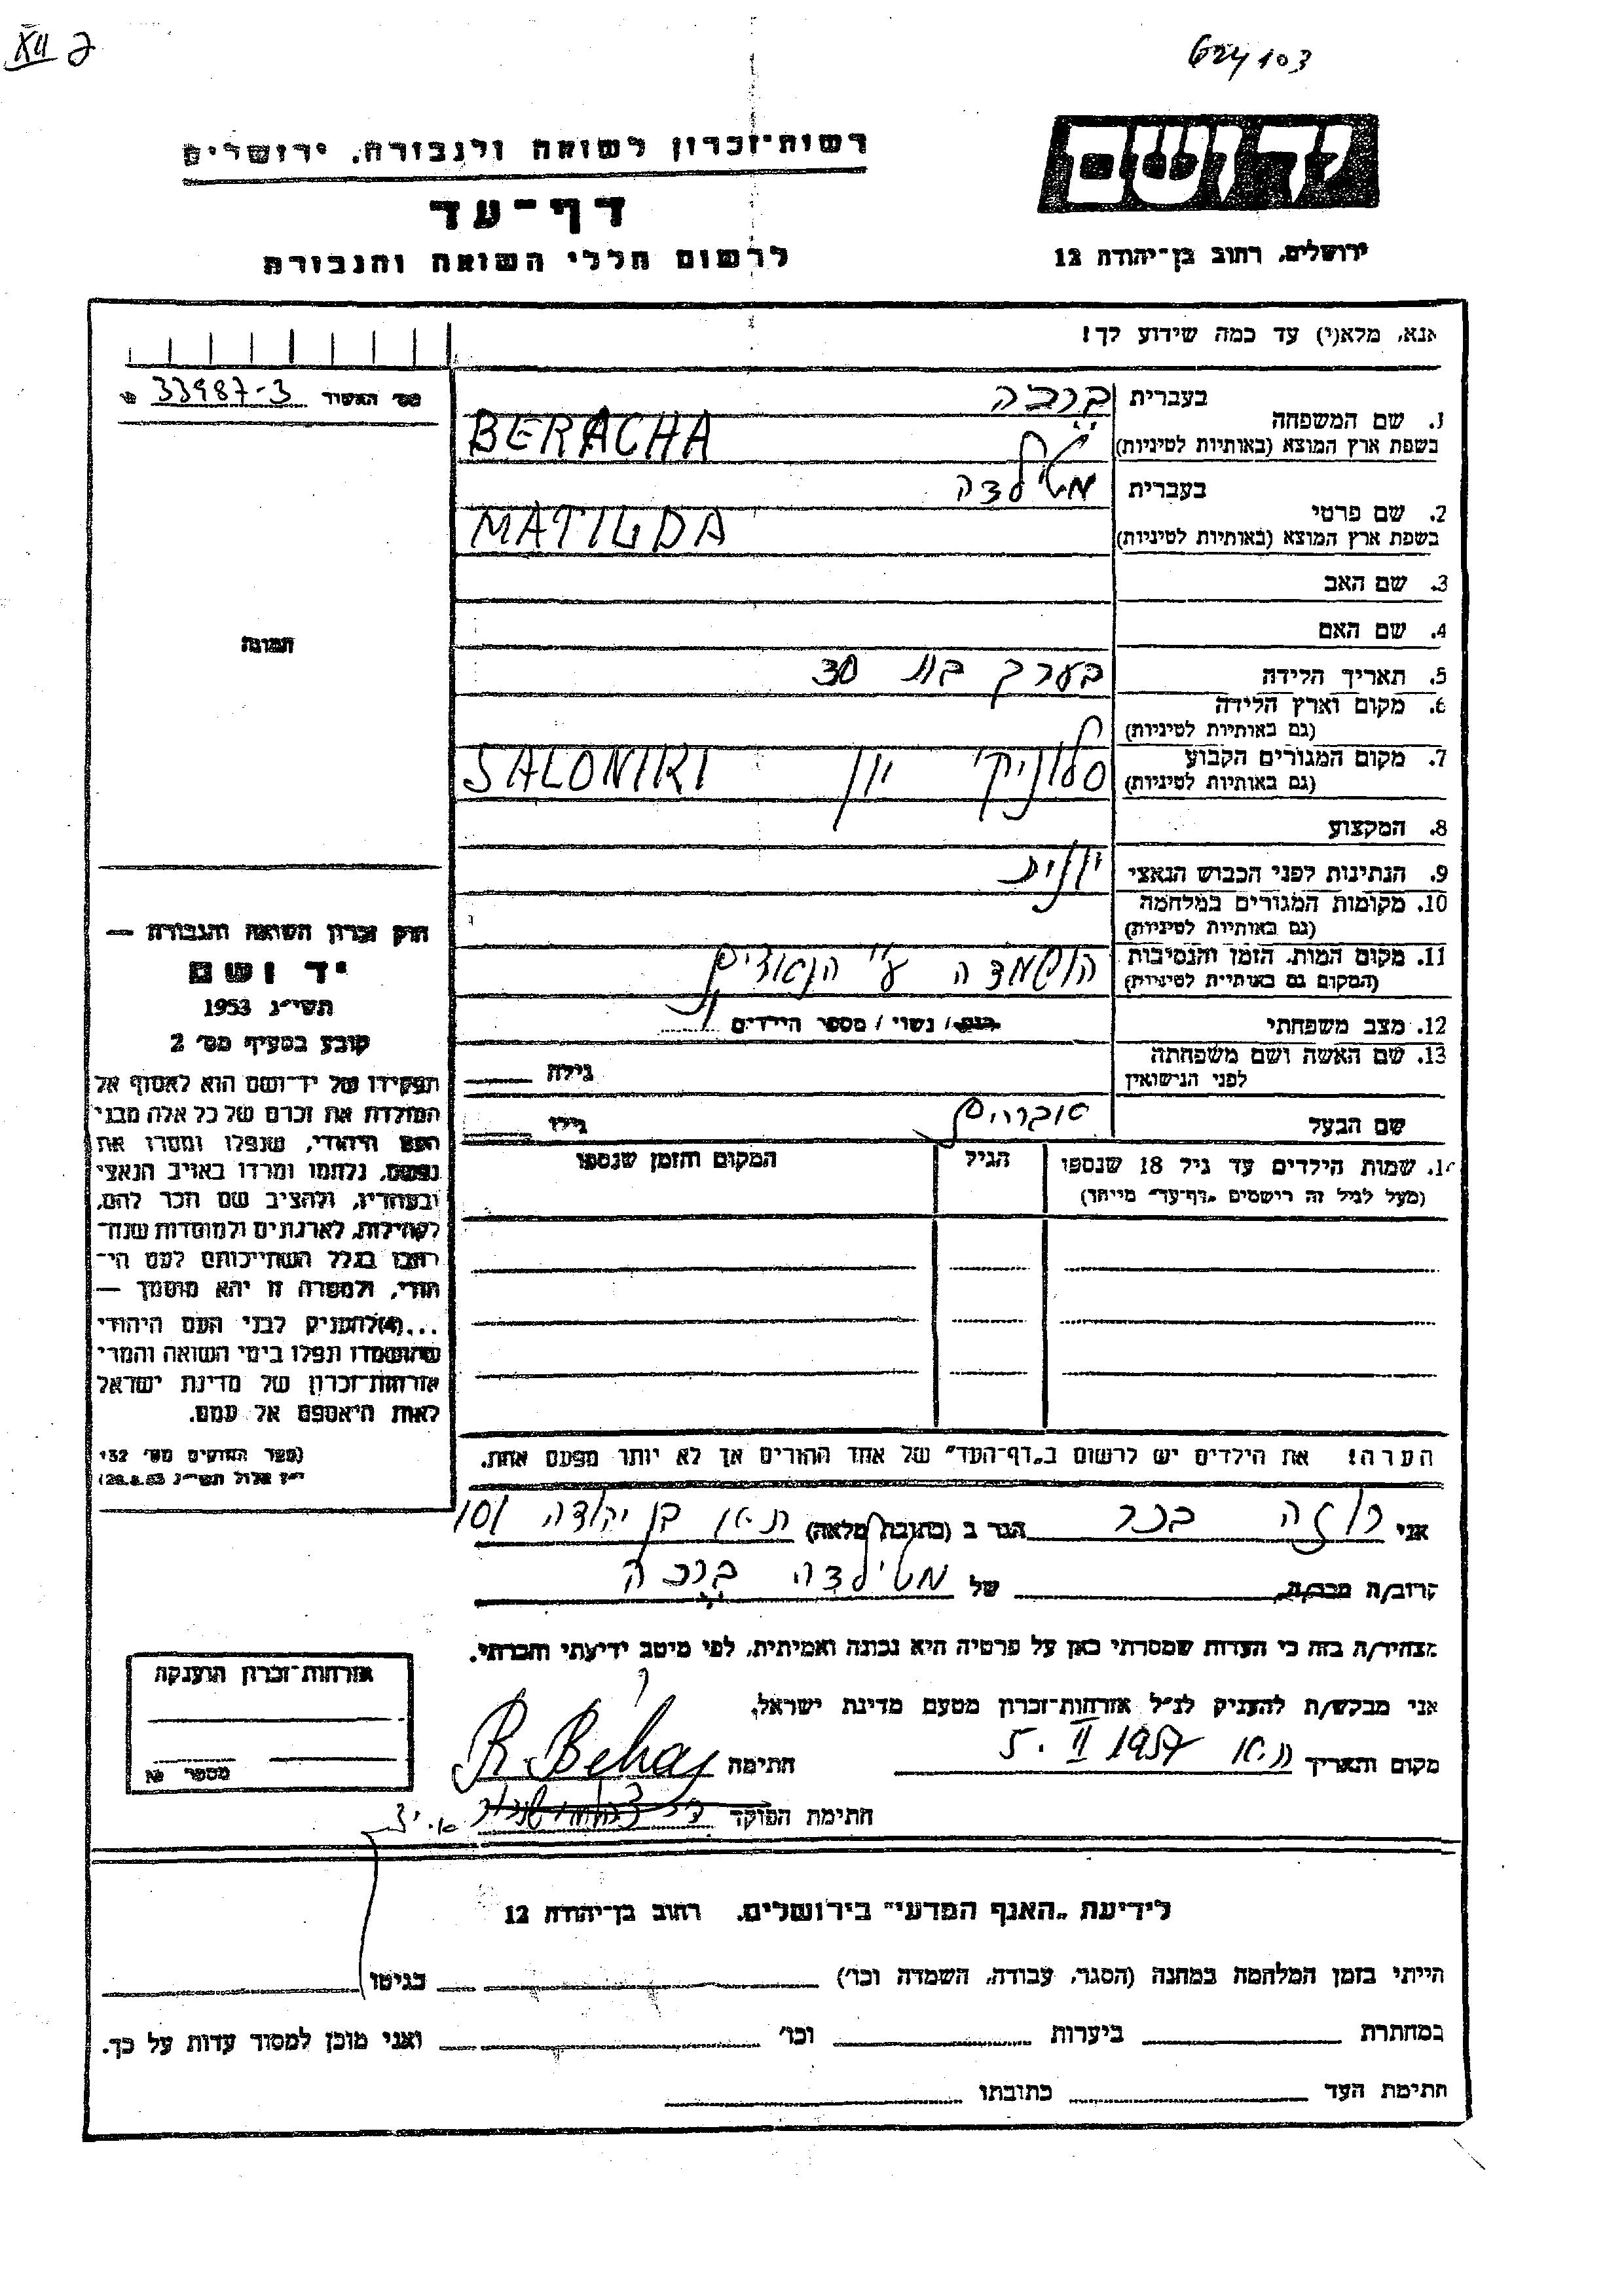 XII 2
624 103
רשות־זכרון לשואה ולגבורה, ירושלים
יד ושם
דף־עד
לרשום חללי השואה והגבורה
ירושלים, רחוב בן־יהודה 12
אנא, מלא(י) עד כמה שידוע לך!
מס׳ האשור 33987-3
בעברית ברכה
1. שם המשפחה
בשפת ארץ המוצא (באותיות לטיניות) BERACHA
בעברית מטילדה
2. שם פרטי
בשפת ארץ המוצא (באותיות לטיניות) MATILDA
3. שם האב
4. שם האם
תמונה
5. תאריך הלידה בערך בת 30
6. מקום וארץ הלידה
(גם באותיות לטיניות)
7. מקום המגורים הקבוע סלוניקי יון SALONIKI
(גם באותיות לטיניות)
8. המקצוע
9. הנתינות לפני הכבוש הנאצי יונית
10. מקומות המגורים במלחמה
(גם באותיות לטיניות)
11. מקום המות, הזמן והנסיבות הושמדה ע״י הנאצים
(המקום גם באותיות לטיניות)
12. מצב משפחתי רווק / נשוי / מספר הילדים
13. שם האשה ושם משפחתה
לפני הנישואין
גילה
שם הבעל אברהם גילו
14. שמות הילדים עד גיל 18 שנספו הגיל המקום והזמן שנספו
(מעל לגיל זה רישמים „דף־עד״ מיוחד)
חוק זכרון השואה והגבורה —
יד ושם
תשי״ג 1953
קובע בסעיף מס׳ 2
תפקידו של יד־ושם הוא לאסוף אל
המולדת את זכרם של כל אלה מבני
העם היהודי, שנפלו ומסרו את
נפשם, נלחמו ומרדו באויב הנאצי
ובעוזריו, ולהציב שם וזכר להם,
לקהילות, לארגונים ולמוסדות שנח־
רבו בגלל השתייכותם לעם הי־
הודי, ולמטרה זו יהא מוסמך —
...(4)להעניק לבני העם היהודי
שהושמדו ונפלו בימי השואה והמרי
אזרחות־זכרון של מדינת ישראל
לאות היאספם אל עמם.
(ספר החוקים מס׳ 132
י״ז אלול תשי״ג 28.8.53)
הערה! את הילדים יש לרשום ב„דף־העד״ של אחד ההורים אך לא יותר מפעם אחת.
אני רוזה בכר הגר ב (כתובת מלאה) ת״א בן יהודה 101
קרוב/ה מכר/ה של מטילדה ברכה
מצהיר/ה בזה כי העדות שמסרתי כאן על פרטיה היא נכונה ואמיתית, לפי מיטב ידיעתי והכרתי.
אני מבקש/ת להעניק לנ״ל אזרחות־זכרון מטעם מדינת ישראל.
מקום ותאריך ת״א 5. II 1957 חתימה R. Behar
חתימת הפוקד
אזרחות־זכרון הוענקה
מספר №
לידיעת „האגף המדעי״ בירושלים, רחוב בן־יהודה 12
הייתי בזמן המלחמה במחנה (הסגר, עבודה, השמדה וכו׳) בגיטו
במחתרת ביערות וכו׳ ואני מוכן למסור עדות על כך.
חתימת העד כתובתו